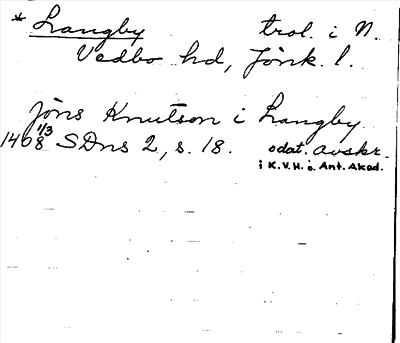 * Langby trol. i N.
Vedbo hd, Jönk. l.
Jöns Knutson i Langby
1408 1/3 SDns 2, s. 18. odat. avskr.
i K.V.H. o. Ant. Akad.